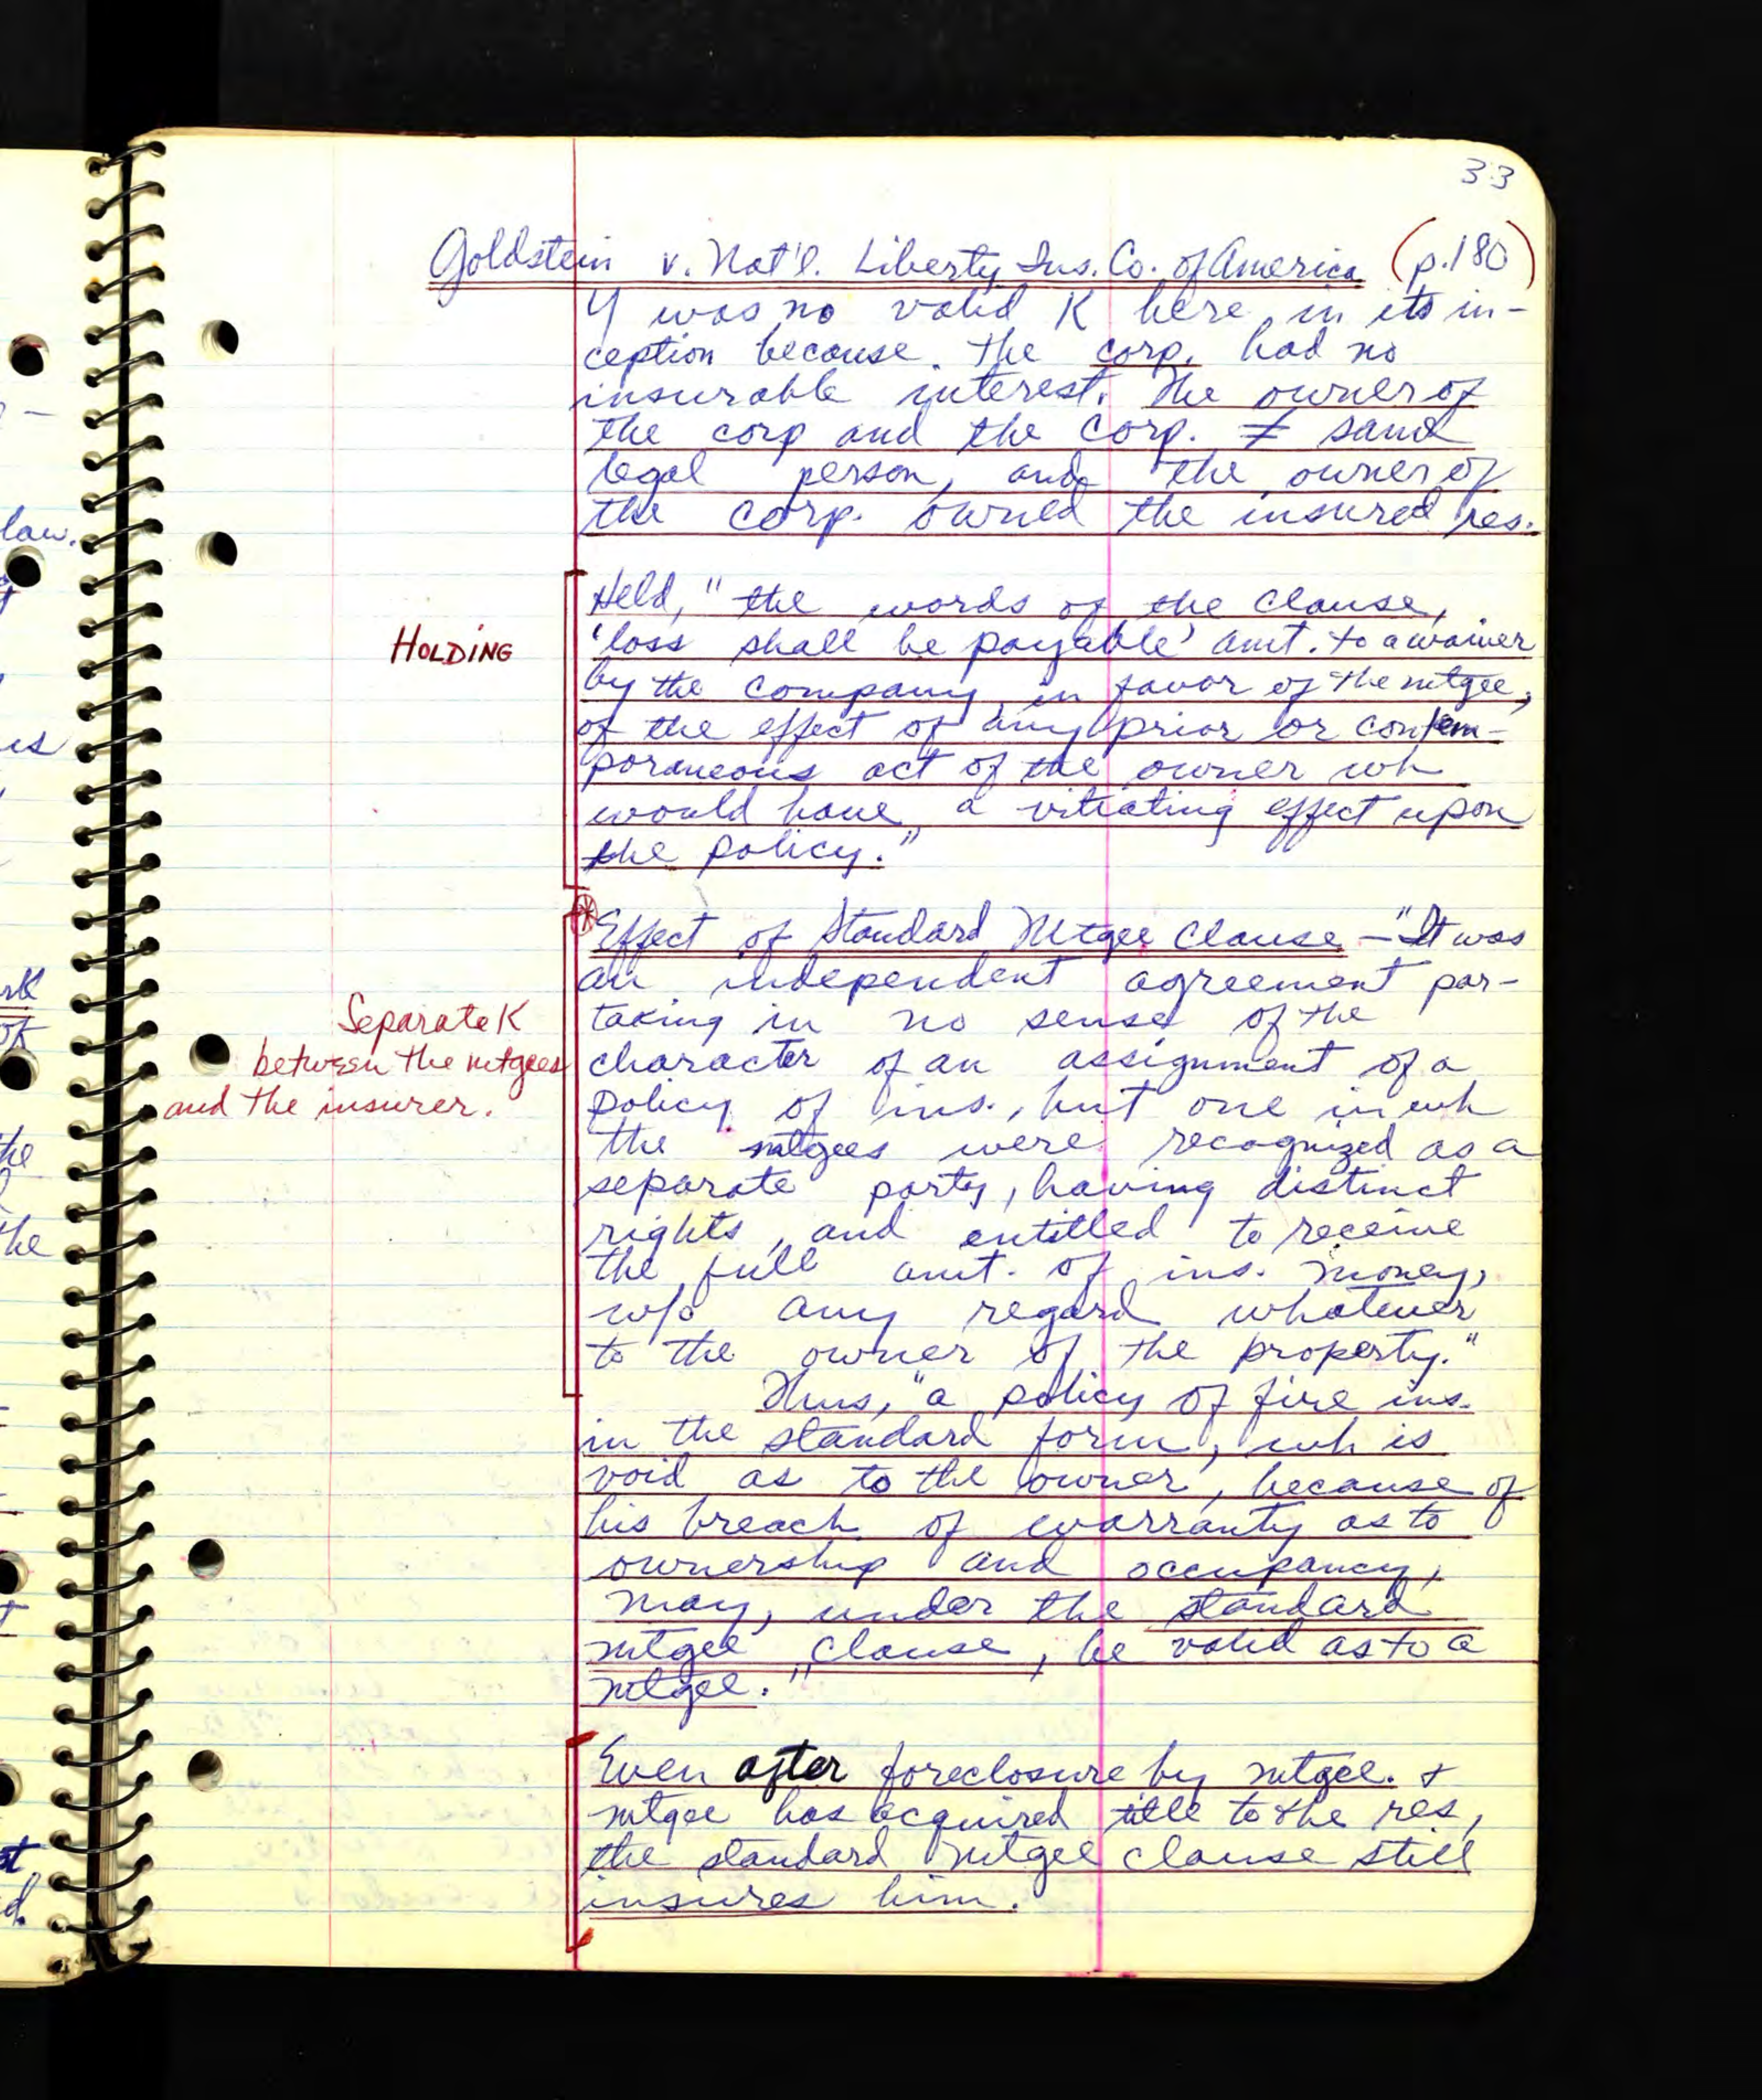 33
Goldstein v. Nat'l. Liberty Ins. Co. of America (p.180)
Y was no valid K here in its in-
ception because the corp. had no
insurable interest. The owner of
the corp and the corp. ≠ same
legal person, and the owner of
the corp. owned the insured res.
HOLDING
Held, "the words of the clause,
'loss shall be payable' amt. to a waiver
by the company in favor of the mtgee,
of the effect of any prior or contem-
poraneous act of the owner wh
would have a vitiating effect upon
the policy."
Effect of Standard Mtgee Clause - "It was
an independent agreement par-
taking in no sense of the
character of an assignment of a
policy of ins., but one in wh
the mtgees were recognized as a
separate party, having distinct
rights, and entitled to receive
the full amt. of ins. money,
w/o any regard whatever
to the owner of the property."
Separate K
between the mtgees
and the insurer.
Thus, "a policy of fire ins.
in the standard form, wh is
void as to the owner, because of
his breach of warranty as to
ownership and occupancy,
may, under the standard
mtgee clause, be valid as to a
mtgee."
Even after foreclosure by mtgee. +
mtgee has acquired title to the res,
the standard mtgee clause still
insures him.
law.
the
the